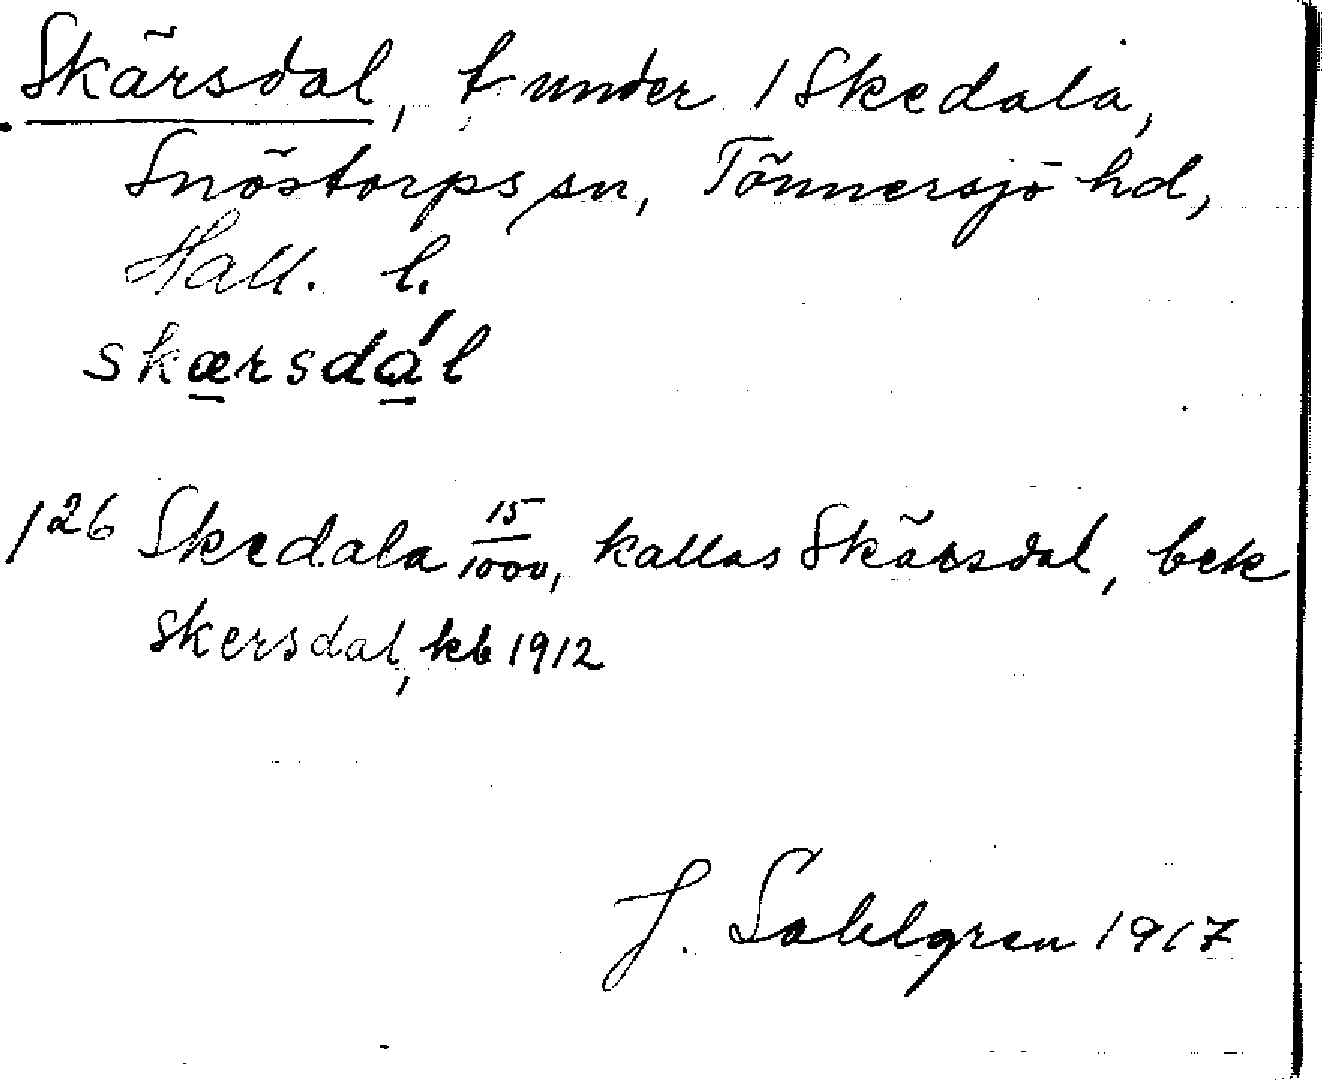 Skärsdal, t under 1 Skedala,
Snöstorps sn, Tönnersjö hd,
Hall. l.
skærsdál
1 26 Skedala 15/1000, kallas Skärsdal, bek
skersdal, kb 1912
J. Sahlgren 1917